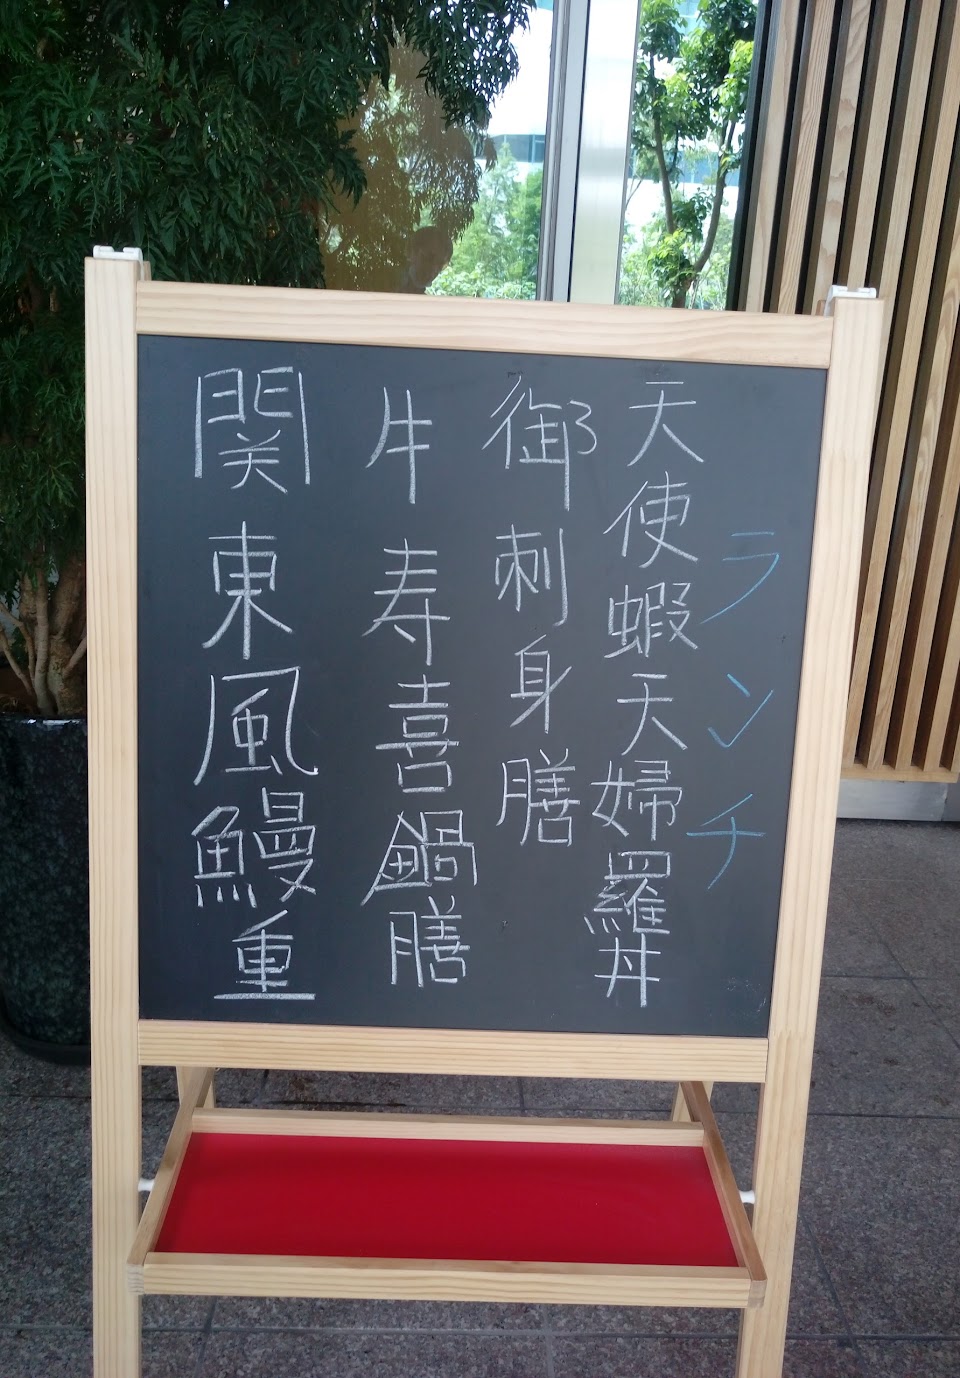 ランチ
天使蝦天婦羅丼
御刺身膳
牛寿喜鍋膳
関東風鰻重